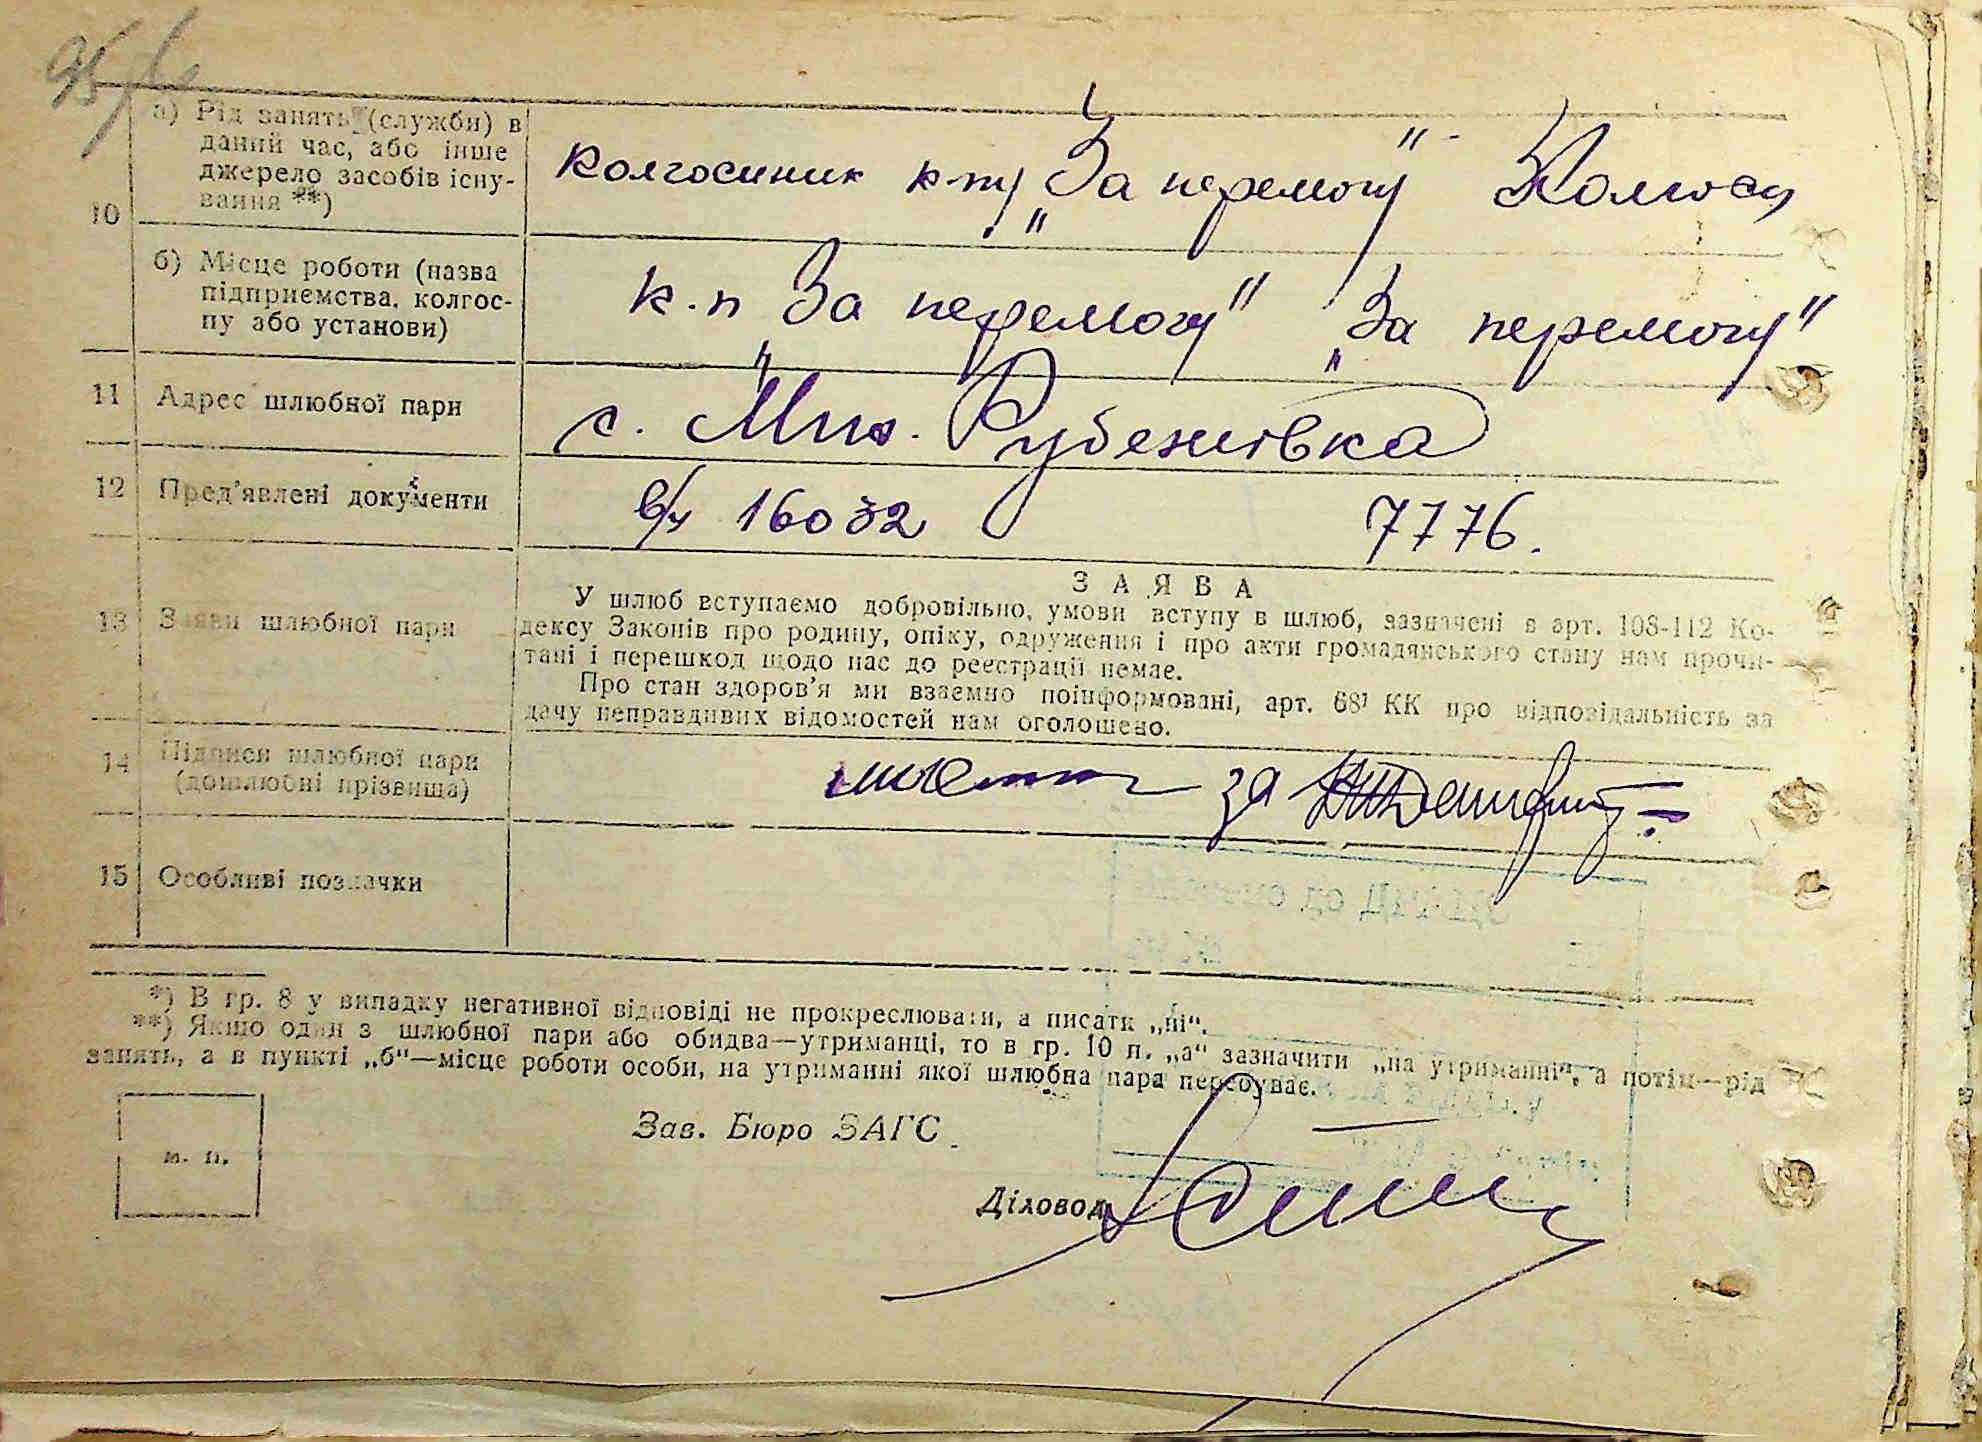 95
а) Рід занять (служби) в
даний час, або інше
джерело засобів існу-
вання **)
10
колгоспник к-пу „За перемогу"
б) Місце роботи (назва
підприємства, колгос-
пу або установи)
к-п „За перемогу" „За перемогу"
11 Адрес шлюбної пари
с. Мик. Рубежівка
12 Пред'явлені документи
в/ч 16032 7776.
13 Заяви шлюбної пари
ЗАЯВА
У шлюб вступаємо добровільно, умови вступу в шлюб, зазначені в арт. 108-112 Ко-
дексу Законів про родину, опіку, одруження і про акти громадянського стану нам прочи-
тані і перешкод щодо нас до реєстрації немає.
Про стан здоров'я ми взаємно поінформовані, арт. 68¹ КК про відповідальність за
дачу неправдивих відомостей нам оголошено.
14 Підписи шлюбної пари
(дошлюбні прізвища)
за
15 Особливі позначки
*) В гр. 8 у випадку негативної відповіді не прокреслювати, а писати „ні".
**) Якщо один з шлюбної пари або обидва—утриманці, то в гр. 10 п. „а" зазначити „на утриманні", а потім—рід
занять, а в пункті „б"—місце роботи особи, на утриманні якої шлюбна пара перебуває.
м. п.
Зав. Бюро ЗАГС
Діловод